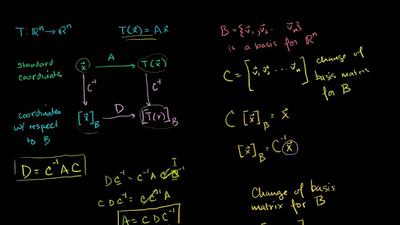 T: ℝⁿ → ℝⁿ
T(x⃗) = Ax⃗
standard coordinates
x⃗ A T(x⃗)
C⁻¹ C⁻¹
coordinates w/ respect to B
[x⃗]_B D [T(x⃗)]_B
D = C⁻¹ A C
D C⁻¹ = C⁻¹ A
C D C⁻¹ = C C⁻¹ A
A = C D C⁻¹
B = {v⃗₁, v⃗₂ ... v⃗ₙ}
is a basis for ℝⁿ
C = [v⃗₁, v⃗₂ ... v⃗ₙ] change of basis matrix for B
C [x⃗]_B = x⃗
[x⃗]_B = C⁻¹ x⃗
Change of basis
matrix for B